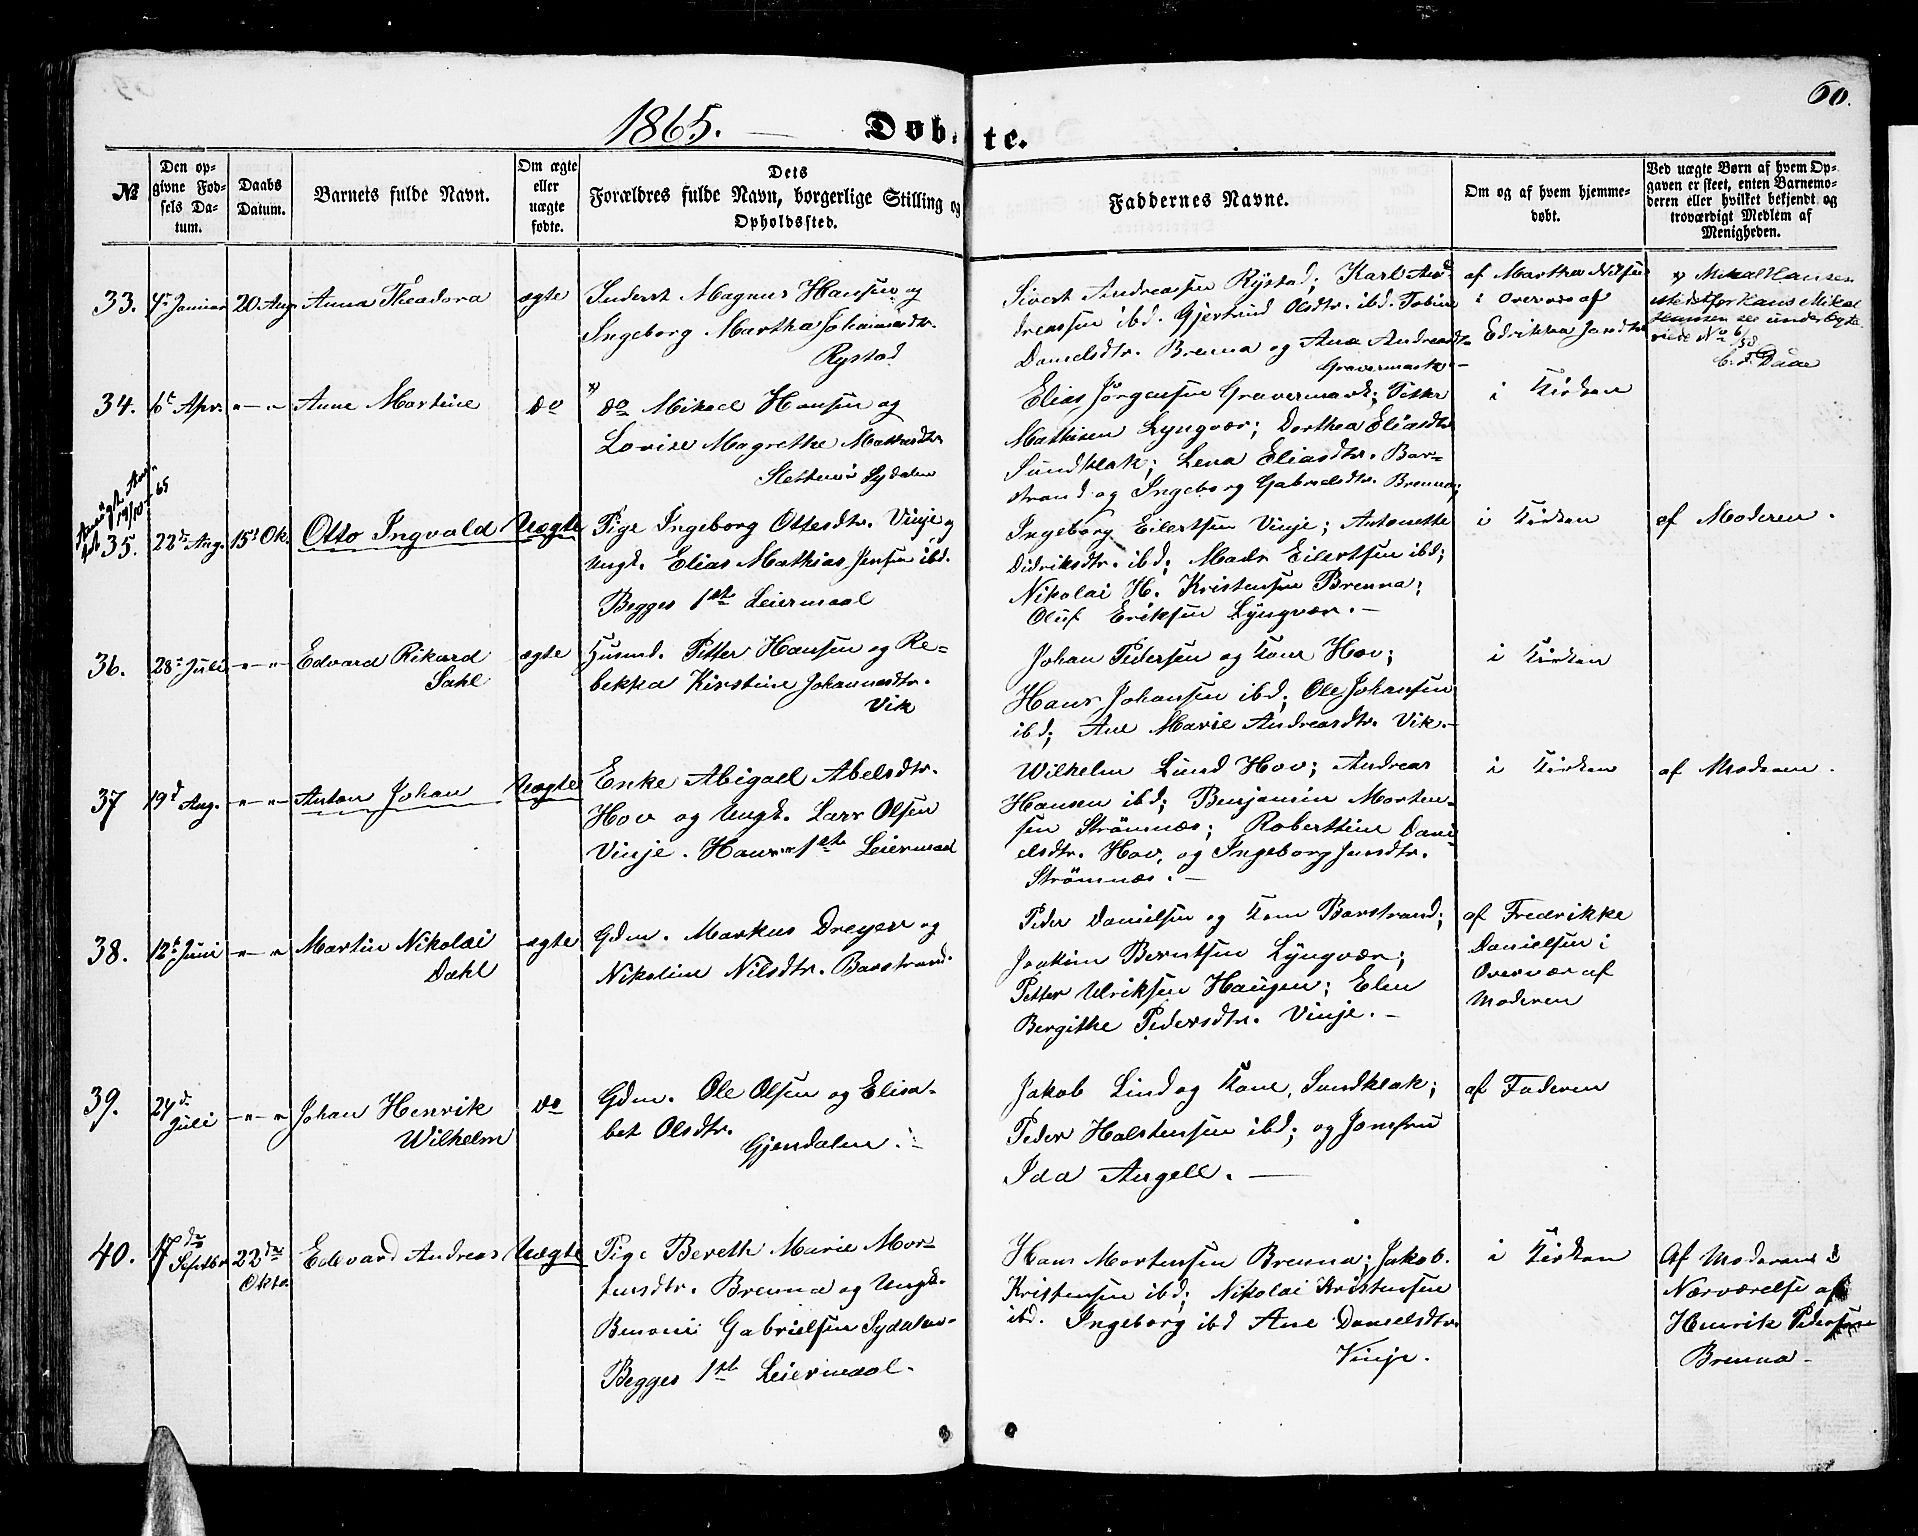 60.
1865. — Døbte.
№
Den opgivne Fødsels Datum.
Daabs Datum.
Barnets fulde Navn.
Om ægte eller uægte fødte.
Dets Forældres fulde Navn, borgerlige Stilling og Opholdssted.
Faddernes Navne.
Om og af hvem hjemmedøbt.
Ved uægte Børn af hvem Opgaven er skeet, enten Barnemoderen eller hvilket bekjendt og troværdigt Medlem af Menigheden.
33. 4de Januar 20 Aug. Anna Theodora ægte
Inderst Magnus Hansen og
Ingeborg Martha Johannesdtr.
Rystad
Sivert Andreassen Rystad; Karl An-
dreassen ibd. Gjertrud Olsdtr. ibd. Tobine
Danielsdtr. Brenna og Ane Andreasdtr
Gravermark.—
af Martha Nilsen
i Overvær af
Edrikka Jensdtr
x) Mikal Hansen
istedetfor Hans Mikal
Hanssen see
C. F. Daae
34. 6te Apr. "—" Anne Martine do
x) do Mikael Hansen og
Lovise Magrethe Mathisdtr
Slettenes Sydalen
Elias Jørgensen Gravermark; Petter
Mathisen Lyngvær; Dorthea Eliasdtr
Sundklak; Lena Eliasdtr. Bar-
strand og Ingeborg Gabrielsdtr. Brenna;
i Kirken
19/10 65
35. 22de Aug. 15de Ok. Otto Ingvald Uægte
Pige Ingeborg Ottesdtr. Vinje og
Ungk. Elias Mathias Jensen ibd.
Begges 1ste Leiermaal
Ingeborg Eilertsen Vinje; Antonette
Didriksdtr. ibd; Mads Eilertsen ibd;
Nikolai H. Kristensen Brenna;
Oluf Eriksen Lyngvær.—
i Kirken
af Moderen.
36. 28de Juli "—" Edvard Rikard
Dahl
ægte
Husmd. Petter Hansen og Re-
bekka Kirstine Johannesdtr.
Vik
Johan Pedersen og Kone Hov;
Hans Johansen ibd; Ole Johansen
ibd; Ane Marie Andreasdtr. Vik.—
i Kirken
37 19d Aug. "—" Anton Johan Uægte
Enke Abigael Abelsdtr.
Hov og Ungk. Lars Olsen
Vinje. Hans 1ste Leiermaal
Wilhelm Lund Hov; Andreas
Hansen ibd; Benjamin Morten-
sen Strømnæs; Roberttine Dani-
elsdtr. Hov, og Ingeborg Jensdtr.
Strømnæs.—
i Kirken
af Moderen.
38. 12te Juni "—" Martin Nikolai
Dahl
ægte
Gdm. Markus Dreyer og
Nikoline Nilsdtr. Barstrand.
Peder Danielsen og Kone Barstrand;
Joakim Berntsen Lyngvær;
Petter Ulriksen Haugen; Elen
Bergithe Pedersdtr. Vinje.—
af Fredrikke
Danielsen i
Overvær af
Moderen
39. 24d. Juli "—" Johan Henrik
Wilhelm
do
Gdm. Ole Olsen og Elisa-
bet Olsdtr.
Gjendalen.
Jakob Lind og Kone, Sundklak;
Peder Halstensen ibd; og Jomfru
Ida Angell.—
af Faderen
40. 17de Septbr 22de Oktr. Edevard Andreas Uægte
Pige Bereth Marie Mor-
tensdtr. Brenna og Ungk.
Benoni Gabrielsen Sydalen.
Begges 1st Leiermaal.
Hans Mortensen Brenna; Jakob
Kristensen ibd; Nikolai Kristensen
ibd. Ingeborg ibd Ane Danielsdtr.
Vinje.
i Kirken
Af Moderen i
Nærværelse af
Henrik Pedersen
Brenna.